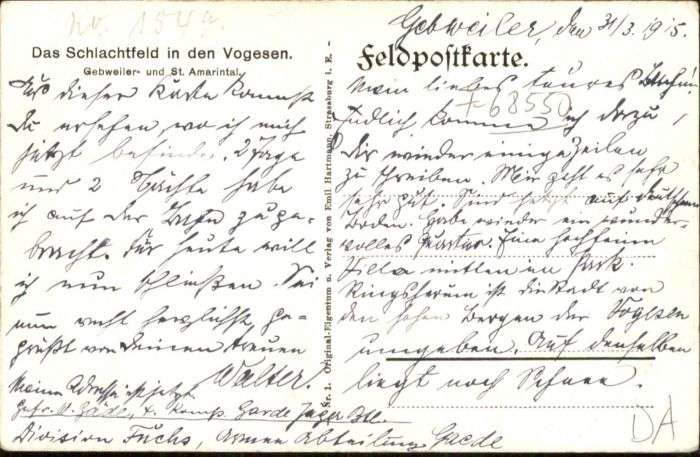 no. 154a.
Das Schlachtfeld in den Vogesen.
Gebweiler- und St. Amarintal.
Nr. 1. Original-Eigentum u. Verlag von Emil Hartmann, Strassburg i. E. -
Gebweiler, den 31/3. 1915.
Feldpostkarte.
Mein liebes teures
+68550
Endlich komme ich dazu,
Dir wieder einige Zeilen
zu schreiben. Mir geht es sehr
sehr gut. Sind jetzt auf deutschem
Boden. Habe wieder ein wunder-
volles Quartier. Eine hochfeine
Villa mitten im Park.
Ringsherum ist die Stadt von
den hohen Bergen der Vogesen
umgeben. Auf denselben
liegt noch Schnee.
Aus dieser Karte kannst
Du ersehen, wo ich mich
jetzt befinde. 2 Tage
und 2 Nächte habe
ich auf der Bahn zuge-
bracht. Für heute will
ich nun schließen. Sei
nun recht herzlichst ge-
grüßt von Deinem treuen
Walter.
Meine Adresse ist jetzt
Gefr. W. Komp. Garde Jäger Btl.
Division Fuchs, Armee Abteilung Gaede
DA